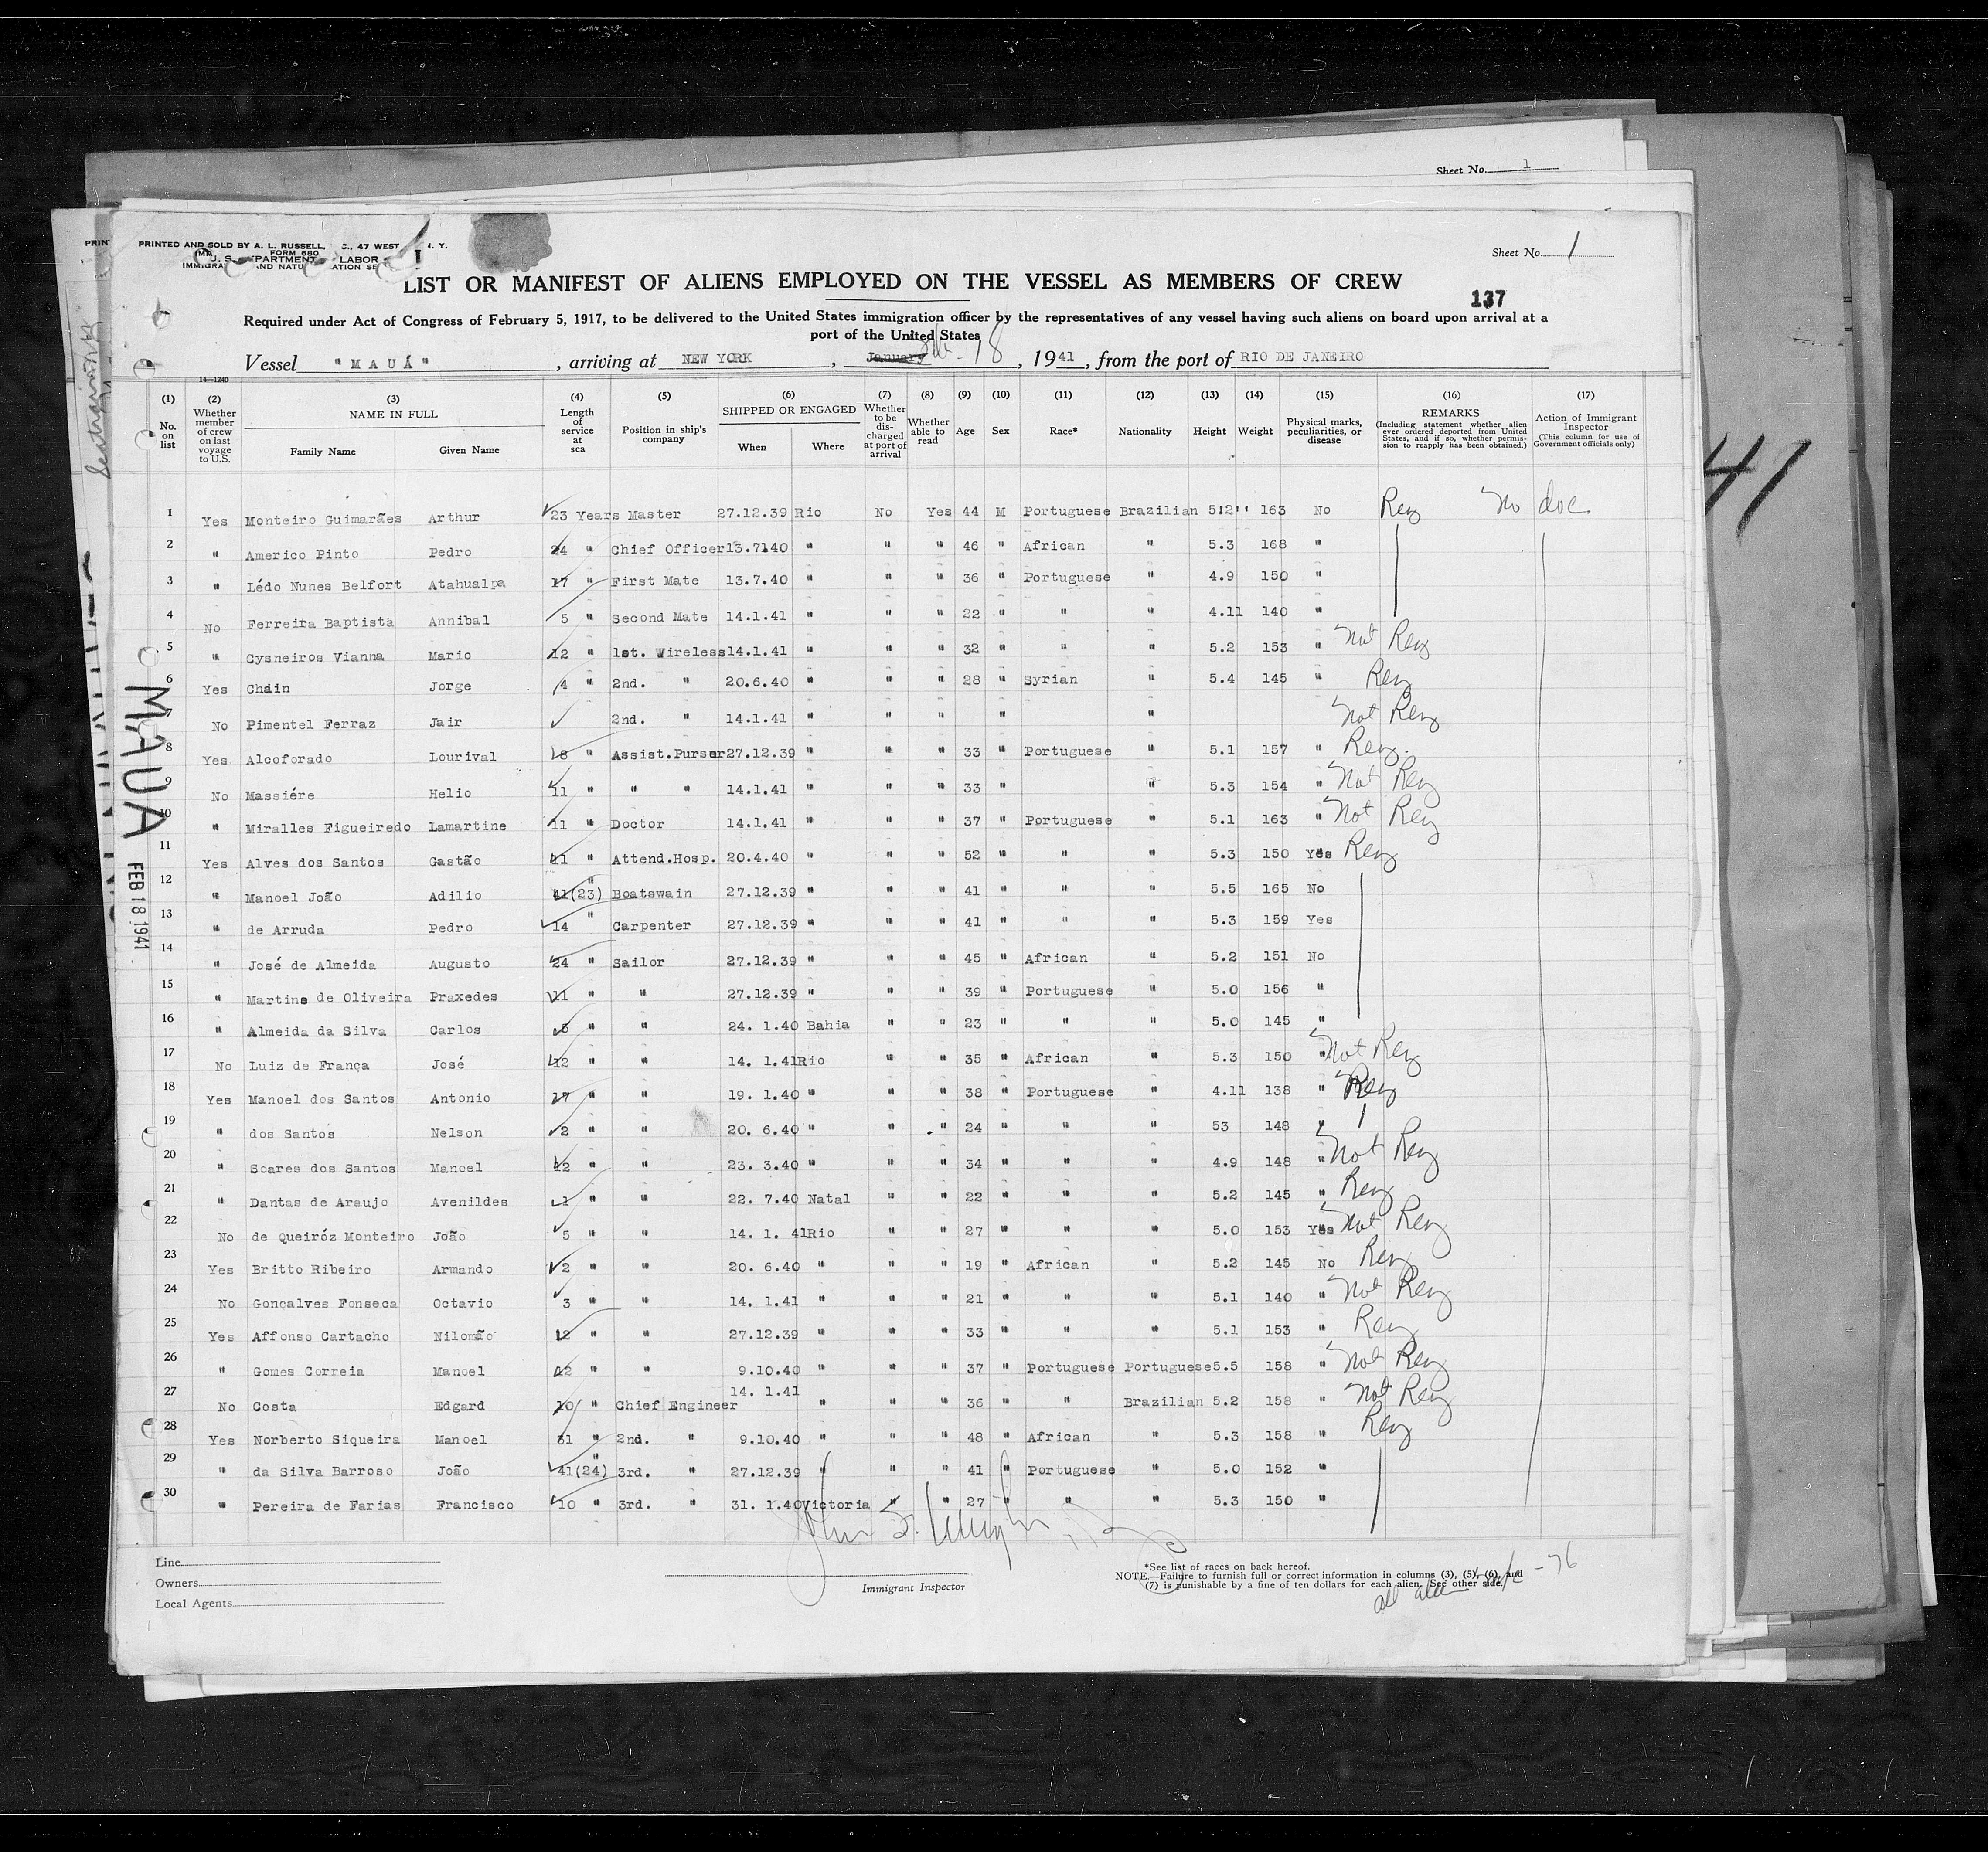 Sheet No. 1
PRINTED AND SOLD BY A. L. RUSSELL, 47 WEST N. Y.
FORM 680
LABOR
Sheet No. 1
LIST OR MANIFEST OF ALIENS EMPLOYED ON THE VESSEL AS MEMBERS OF CREW
137
Required under Act of Congress of February 5, 1917, to be delivered to the United States immigration officer by the representatives of any vessel having such aliens on board upon arrival at a
port of the United States
Vessel "MAUÁ", arriving at NEW YORK, January Feb. 18, 1941, from the port of RIO DE JANEIRO
14—1240
(1) (2) (3) (4) (5) (6) (7) (8) (9) (10) (11) (12) (13) (14) (15) (16) (17)
No. on list
Whether member of crew on last voyage to U.S.
NAME IN FULL
Family Name Given Name
Length of service at sea
Position in ship's company
SHIPPED OR ENGAGED
When Where
Whether to be discharged at port of arrival
Whether able to read
Age
Sex
Race*
Nationality
Height
Weight
Physical marks, peculiarities, or disease
REMARKS
(Including statement whether alien ever ordered deported from United States, and if so, whether permission to reapply has been obtained.)
Action of Immigrant Inspector
(This column for use of Government officials only)
1 Yes Monteiro Guimarães Arthur 23 Years Master 27.12.39 Rio No Yes 44 M Portuguese Brazilian 5:2" 163 No Reg No doc
2 " Americo Pinto Pedro 24 " Chief Officer 13.7140 " " " 46 " African " 5.3 168 "
3 " Lédo Nunes Belfort Atahualpa 17 " First Mate 13.7.40 " " " 36 " Portuguese " 4.9 150 "
4 No Ferreira Baptista Annibal 5 " Second Mate 14.1.41 " " " 22 " " " 4.11 140 "
5 " Cysneiros Vianna Mario 12 " 1st. Wireless 14.1.41 " " " 32 " " " 5.2 153 " Not Reg
6 Yes Chain Jorge 4 " 2nd. " 20.6.40 " " " 28 " Syrian " 5.4 145 " Reg
7 No Pimentel Ferraz Jair 2nd. " 14.1.41 " " " " " Not Reg
8 Yes Alcoforado Lourival 8 " Assist.Purser 27.12.39 " " " 33 " Portuguese " 5.1 157 " Reg.
9 No Massiére Helio 11 " " " 14.1.41 " " " 33 " " 5.3 154 " Not Reg
10 " Miralles Figueiredo Lamartine 11 " Doctor 14.1.41 " " " 37 " Portuguese " 5.1 163 " Not Reg
11 Yes Alves dos Santos Gastão 11 " Attend.Hosp. 20.4.40 " " " 52 " " " 5.3 150 Yes Reg
12 " Manoel João Adilio 41(23) " Boatswain 27.12.39 " " " 41 " " " 5.5 165 No
13 " de Arruda Pedro 14 " Carpenter 27.12.39 " " " 41 " " " 5.3 159 Yes
14 " José de Almeida Augusto 24 " Sailor 27.12.39 " " " 45 " African " 5.2 151 No
15 " Martins de Oliveira Praxedes 11 " " 27.12.39 " " " 39 " Portuguese " 5.0 156 "
16 " Almeida da Silva Carlos 5 " " 24. 1.40 Bahia " " 23 " " " 5.0 145 "
17 No Luiz de França José 12 " " 14. 1.41 Rio " " 35 " African " 5.3 150 " Not Reg
18 Yes Manoel dos Santos Antonio 17 " " 19. 1.40 " " " 38 " Portuguese " 4.11 138 " Reg
19 " dos Santos Nelson 2 " " 20. 6.40 " " " 24 " " " 53 148 "
20 " Soares dos Santos Manoel 12 " " 23. 3.40 " " " 34 " " " 4.9 148 " Not Reg
21 " Dantas de Araujo Avenildes 1 " " 22. 7.40 Natal " " 22 " " " 5.2 145 " Reg
22 No de Queiróz Monteiro João 5 " " 14. 1. 41 Rio " " 27 " " " 5.0 153 Yes Not Reg
23 Yes Britto Ribeiro Armando 2 " " 20. 6.40 " " " 19 " African " 5.2 145 No Reg
24 No Gonçalves Fonseca Octavio 3 " " 14. 1.41 " " " 21 " " " 5.1 140 " Not Reg
25 Yes Affonso Cartacho Nilomão 12 " " 27.12.39 " " " 33 " " " 5.1 153 " Reg
26 " Gomes Correia Manoel 12 " " 9.10.40 " " " 37 " Portuguese Portuguese 5.5 158 " Not Reg
27 No Costa Edgard 10 " Chief Engineer 14. 1.41 " " " 36 " " Brazilian 5.2 158 " Not Reg
28 Yes Norberto Siqueira Manoel 31 " 2nd. " 9.10.40 " " " 48 " African " 5.3 158 " Reg
29 " da Silva Barroso João 41(24) " 3rd. " 27.12.39 " " " 41 " Portuguese " 5.0 152 "
30 " Pereira de Farias Francisco 10 " 3rd. " 31. 1.40 Victoria " " 27 " " " 5.3 150 "
MAUA
FEB 18 1941
41
Line
Owners
Local Agents
Immigrant Inspector
*See list of races on back hereof.
NOTE.—Failure to furnish full or correct information in columns (3), (5), (6), and
(7) is punishable by a fine of ten dollars for each alien. See other side.